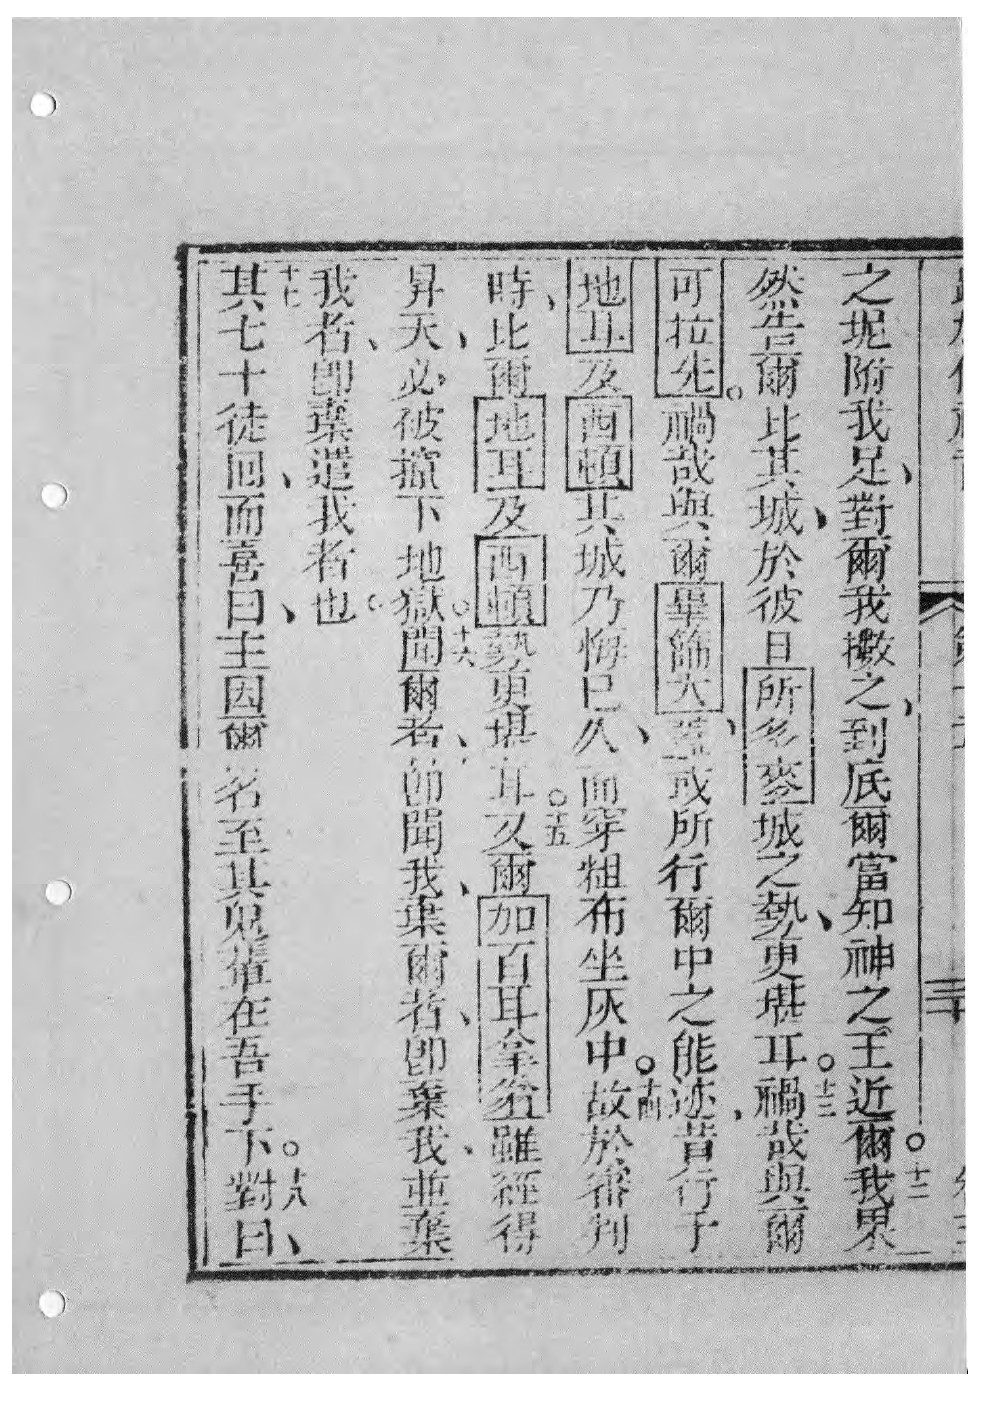 之坭附我足、對爾我撽之、到底爾當知神之王近爾。十二我果
然告爾比其城、於彼日所多麥城之勢、更堪耳。十三禍哉與爾
可拉先。禍哉與爾畢篩大、蓋或所行爾中之能迹、昔行于
地耳及西頓、其城乃悔已久、而穿粗布坐灰中。十四故於審判
時、比爾地耳及西頓勢更堪耳。十五又爾加百耳拿翁、雖經得
昇天、必被㨆下地獄。十六聞爾者、即聞我、棄爾者、即棄我、並棄
我者、即棄遣我者也。
十七其七十徒回、而喜曰、主因爾名至其鬼輩在吾手下。十八對曰、